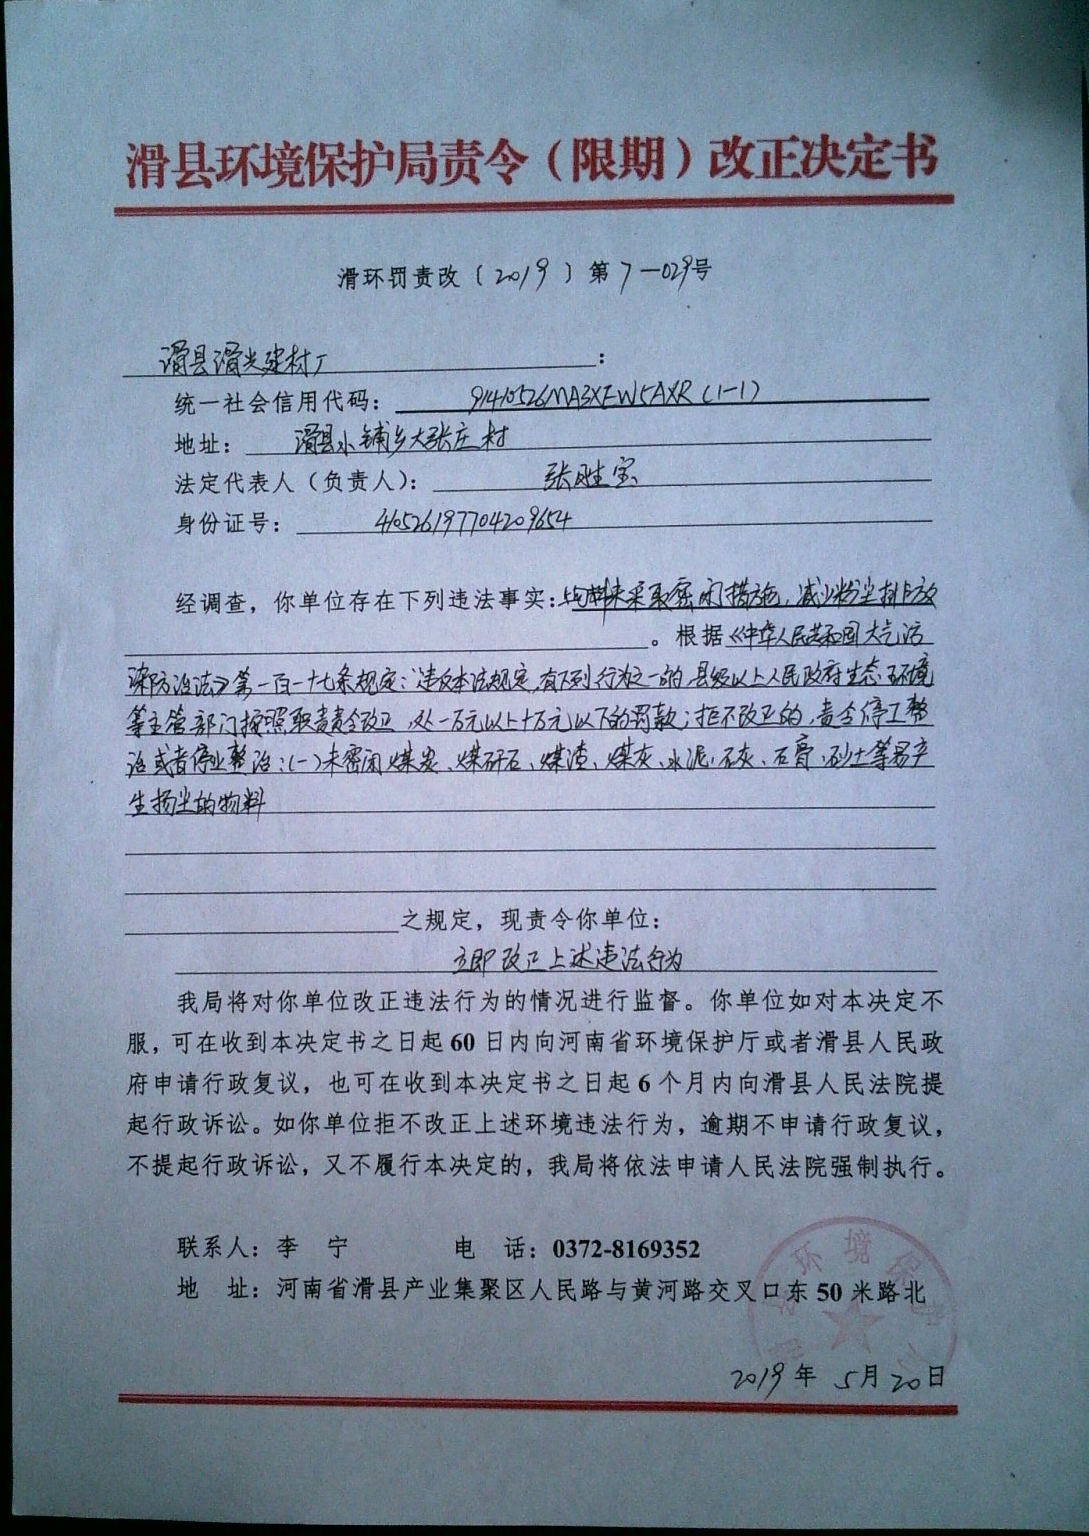 滑县环境保护局责令（限期）改正决定书
滑环罚责改〔2019〕第7-029号
滑县滑兴建材厂：
统一社会信用代码：91410526MA3XEW5AXR（1-1）
地址：滑县小铺乡大张庄村
法定代表人（负责人）：张胜宝
身份证号：410526197704209654
经调查，你单位存在下列违法事实：物料未采取密闭措施，减少粉尘排放
。根据《中华人民共和国大气污
染防治法》第一百一十七条规定：违反本法规定，有下列行为之一的，县级以上人民政府生态环境
等主管部门按照职责责令改正，处一万元以上十万元以下的罚款；拒不改正的，责令停工整
治或者停业整治：（一）未密闭煤炭、煤矸石、煤渣、煤灰、水泥、石灰、石膏、砂土等易产
生扬尘的物料
之规定，现责令你单位：
立即改正上述违法行为
我局将对你单位改正违法行为的情况进行监督。你单位如对本决定不
服，可在收到本决定书之日起60日内向河南省环境保护厅或者滑县人民政
府申请行政复议，也可在收到本决定书之日起6个月内向滑县人民法院提
起行政诉讼。如你单位拒不改正上述环境违法行为，逾期不申请行政复议，
不提起行政诉讼，又不履行本决定的，我局将依法申请人民法院强制执行。
联系人：李 宁 电 话：0372-8169352
地 址：河南省滑县产业集聚区人民路与黄河路交叉口东50米路北
2019年 5月20日